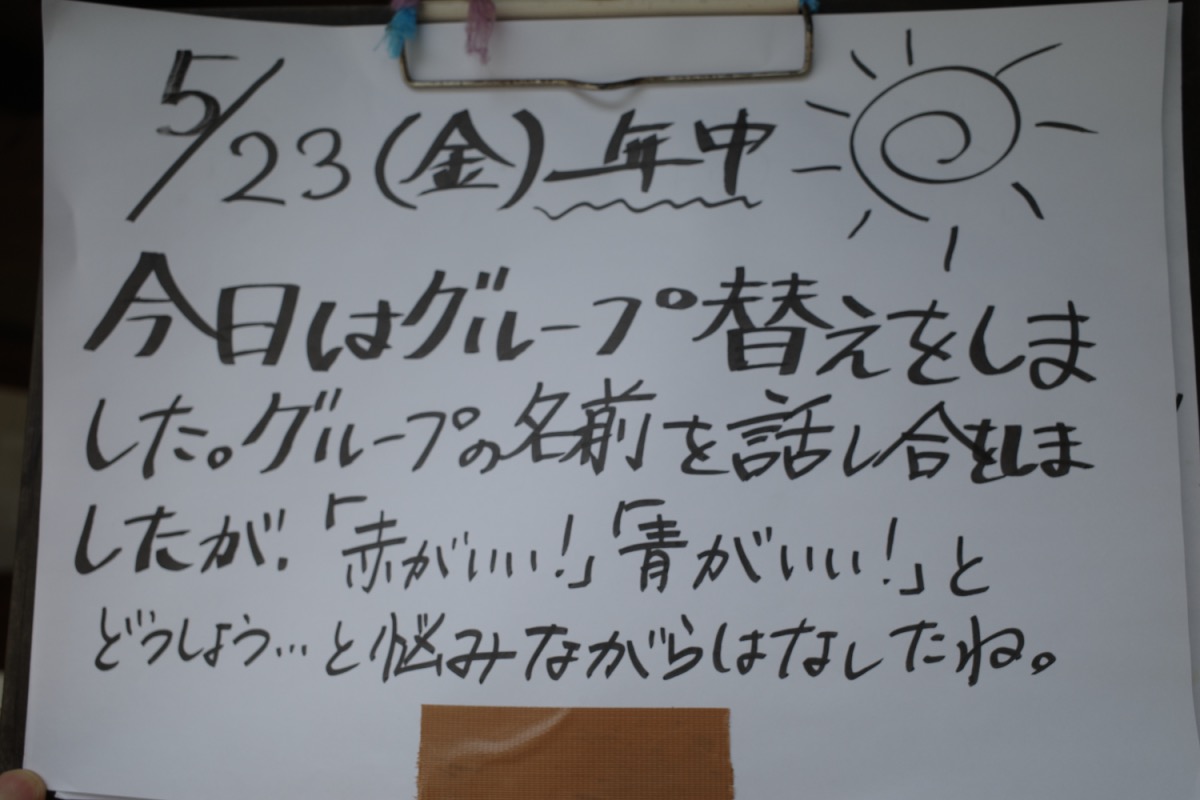 5/23(金)年中
今日はグループ替えをしま
した。グループの名前を話し合をしま
したが、「赤がいい!」「青がいい!」と
どうしよう…と悩みながらはなしたね。